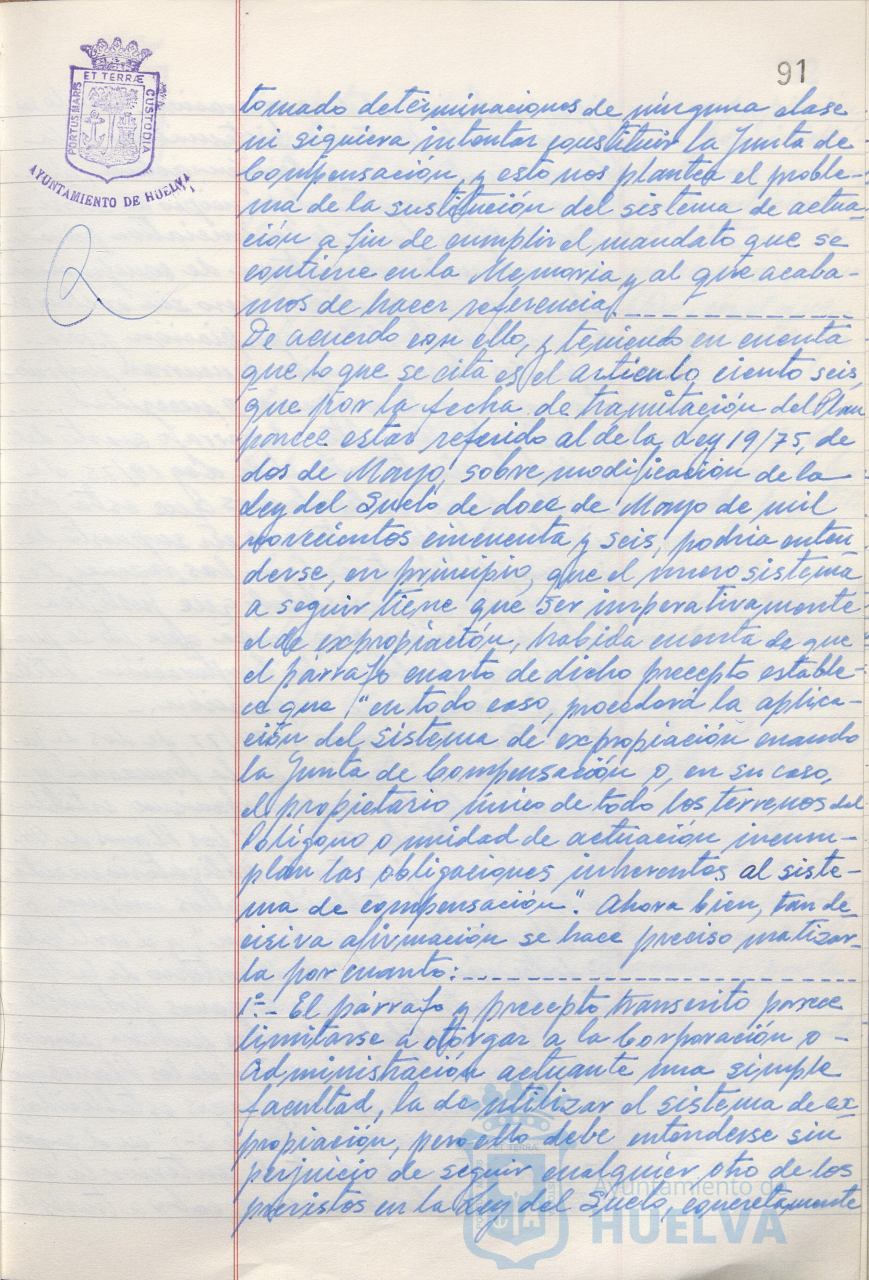 91
ET TERRÆ
PORTUS MARIS
CUSTODIA
AYUNTAMIENTO DE HUELVA
tomado determinaciones de ninguna clase
ni siquiera intentar constituir la Junta de
Compensación, y esto nos plantea el proble-
ma de la sustitución del sistema de actua-
ción a fin de cumplir el mandato que se
contiene en la Memoria y al que acaba-
mos de hacer referencia.
De acuerdo con ello, y teniendo en cuenta
que lo que se cita es el artículo ciento seis,
que por la fecha de tramitación del Plan
parece estar referido al de la Ley 19/75, de
dos de Mayo, sobre modificación de la
Ley del Suelo de doce de Mayo de mil
novecientos cincuenta y seis, podría enten-
derse, en principio, que el nuevo sistema
a seguir tiene que ser imperativamente
el de expropiación, habida cuenta de que
el párrafo cuarto de dicho precepto estable-
ce que "en todo caso, procederá la aplica-
ción del sistema de expropiación cuando
la Junta de Compensación o, en su caso,
el propietario único de todo los terrenos del
Polígono o unidad de actuación incum-
plan las obligaciones inherentes al siste-
ma de compensación". Ahora bien, tan de-
cisiva afirmación se hace preciso matizar-
la por cuanto:
1º.- El párrafo y precepto transcrito parece
limitarse a otorgar a la Corporación o-
Administración actuante una simple
facultad, la de utilizar el sistema de ex
propiación, pero ello debe entenderse sin
perjuicio de seguir cualquier otro de los
previstos en la Ley del Suelo, concretamente
Ayuntamiento de
HUELVA